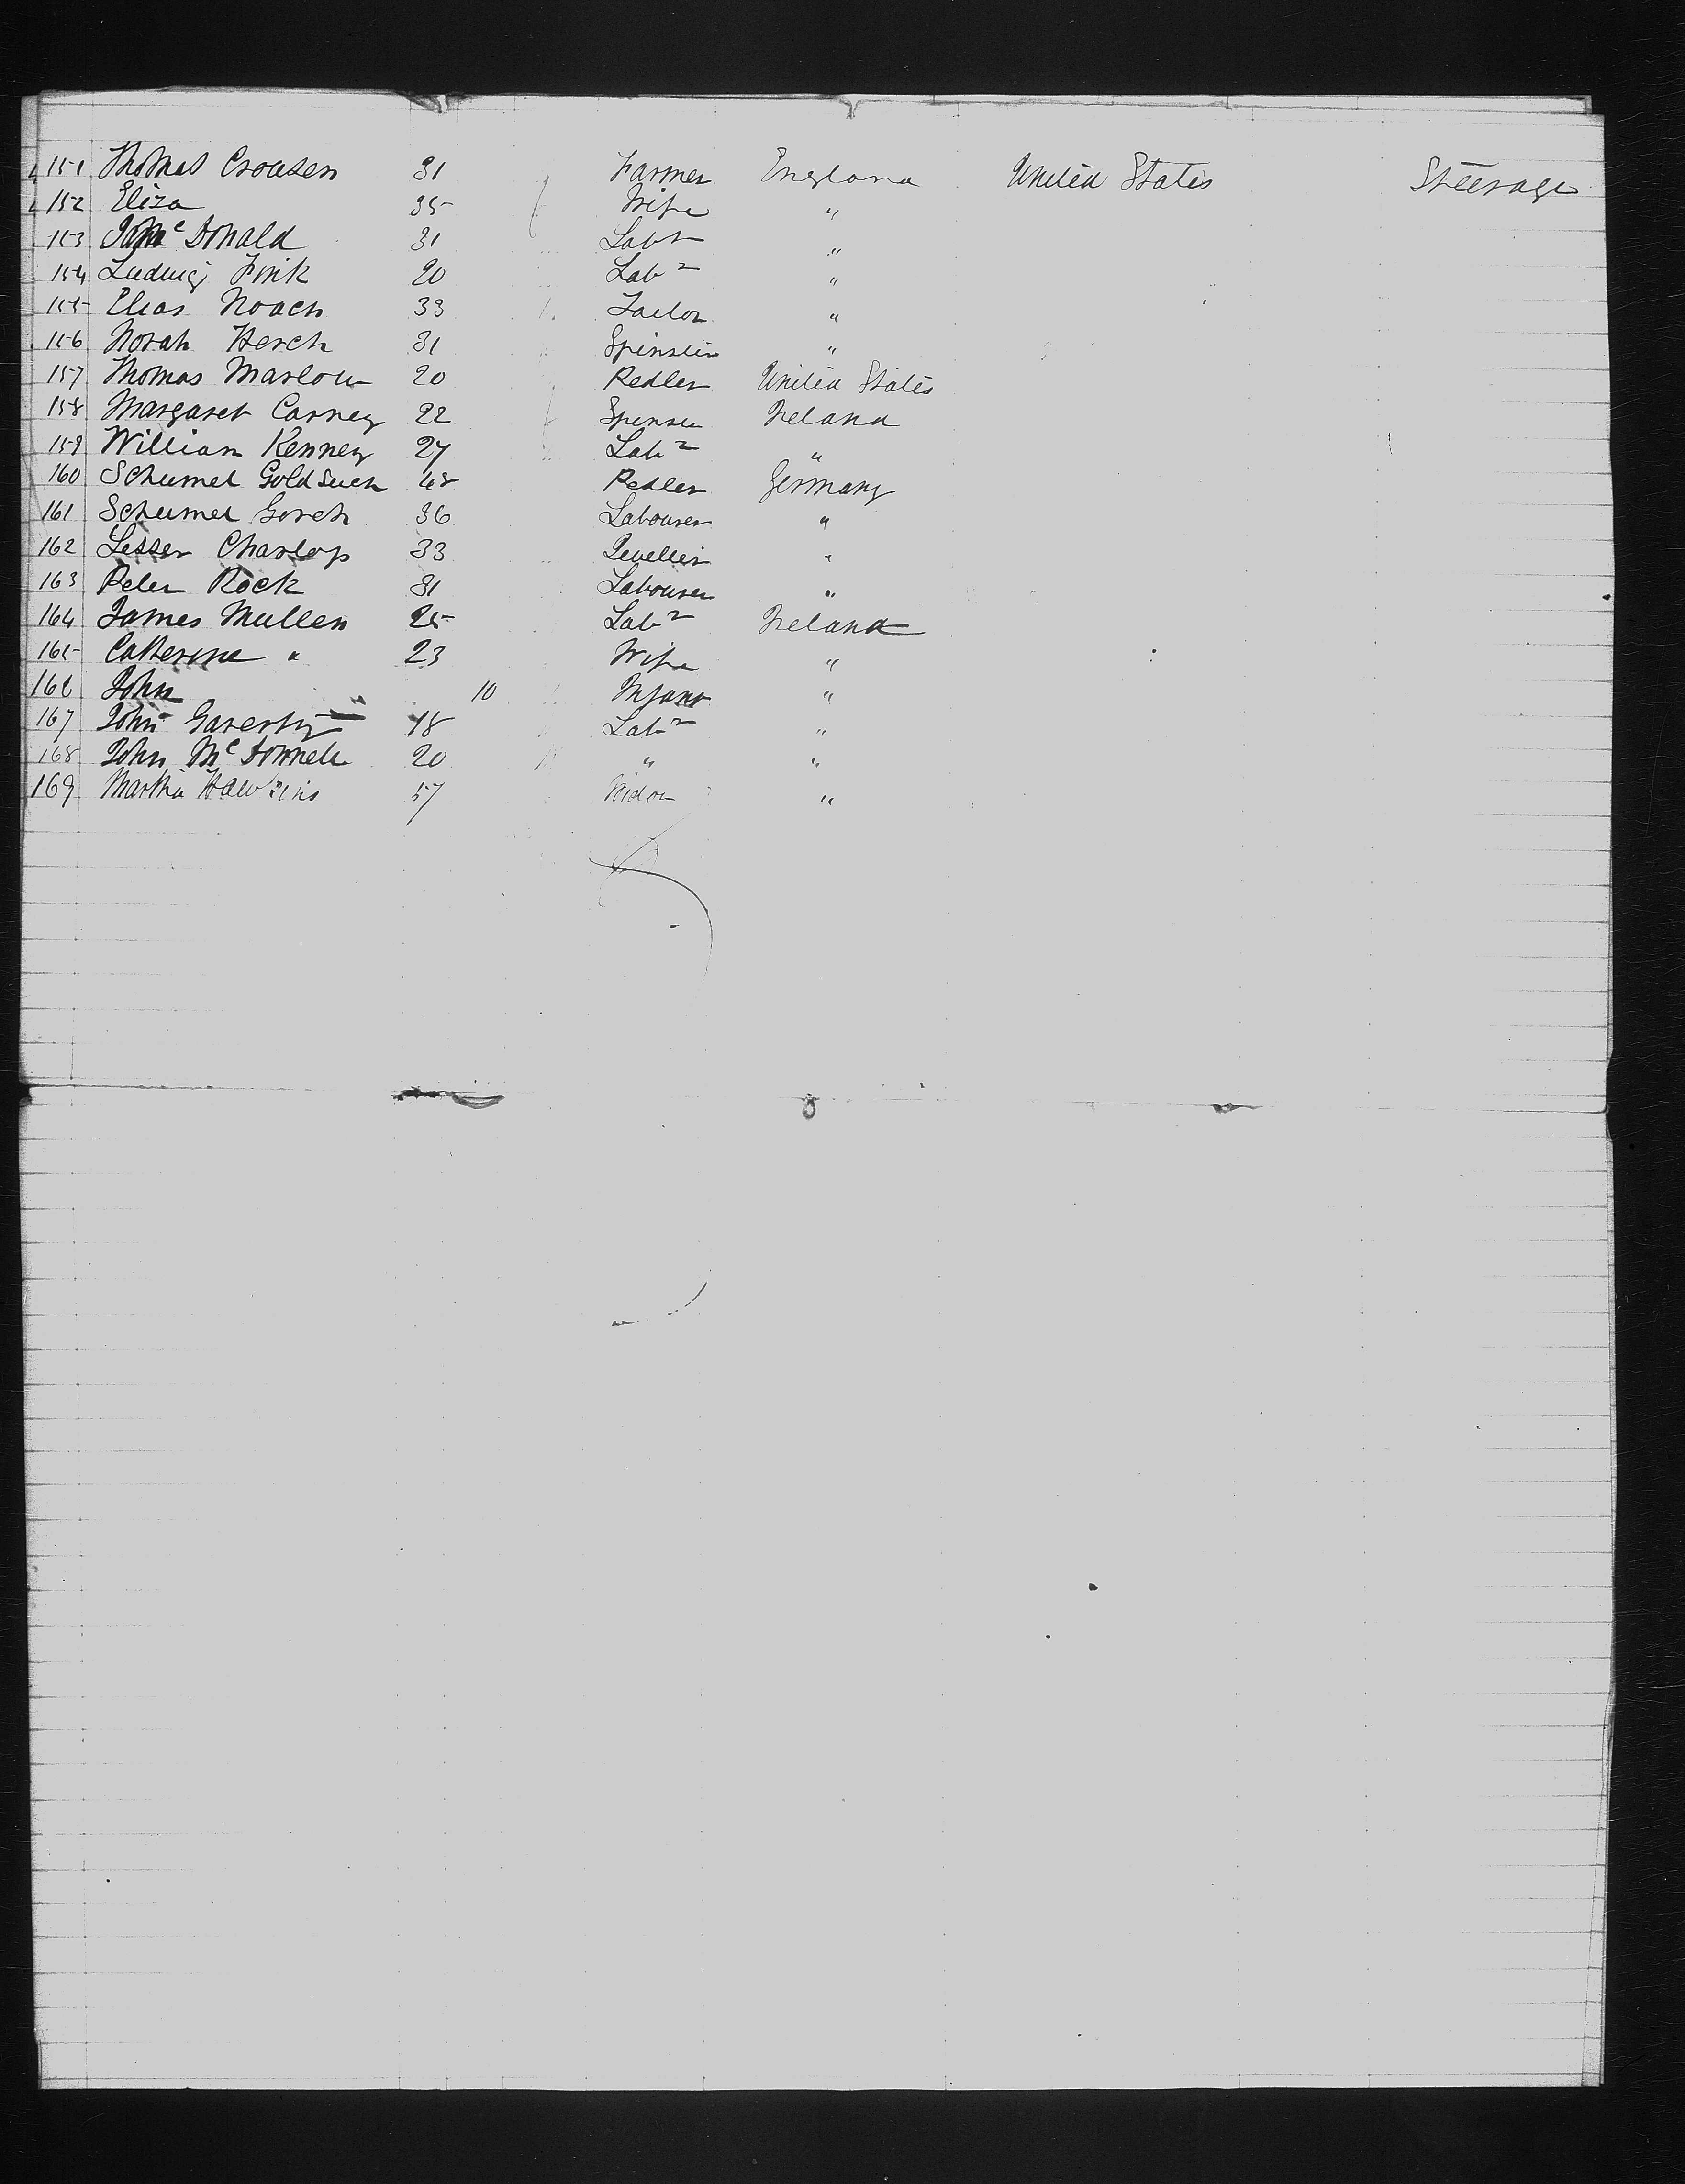 151 Thomas Crowsen 31 Farmer England United States Steerage
152 Eliza 35 f Wife "
153 McDonald 31 Labr "
154 Ludwig Fink 20 Labr "
155 Elias Noach 33 Tailor "
156 Norah Herch 31 Spinster "
157 Thomas Marlow 20 Pedler United States
158 Margaret Carney 22 f Ireland
159 William Kenney 27 Labr "
160 Schumel 48 Pedler Germany
161 Schumel Gorch 36 Labourer "
162 Lesser Charlop 33 Jeweller "
163 Peter Rock 31 Labourer "
164 James Mullen 25 Labr Ireland
165 Catherine " 23 Wife "
166 John 10 Infant "
167 John Gaverty 18 Labr "
168 John McDonnell 20 " "
169 Martha Hawkins 57 Widow "